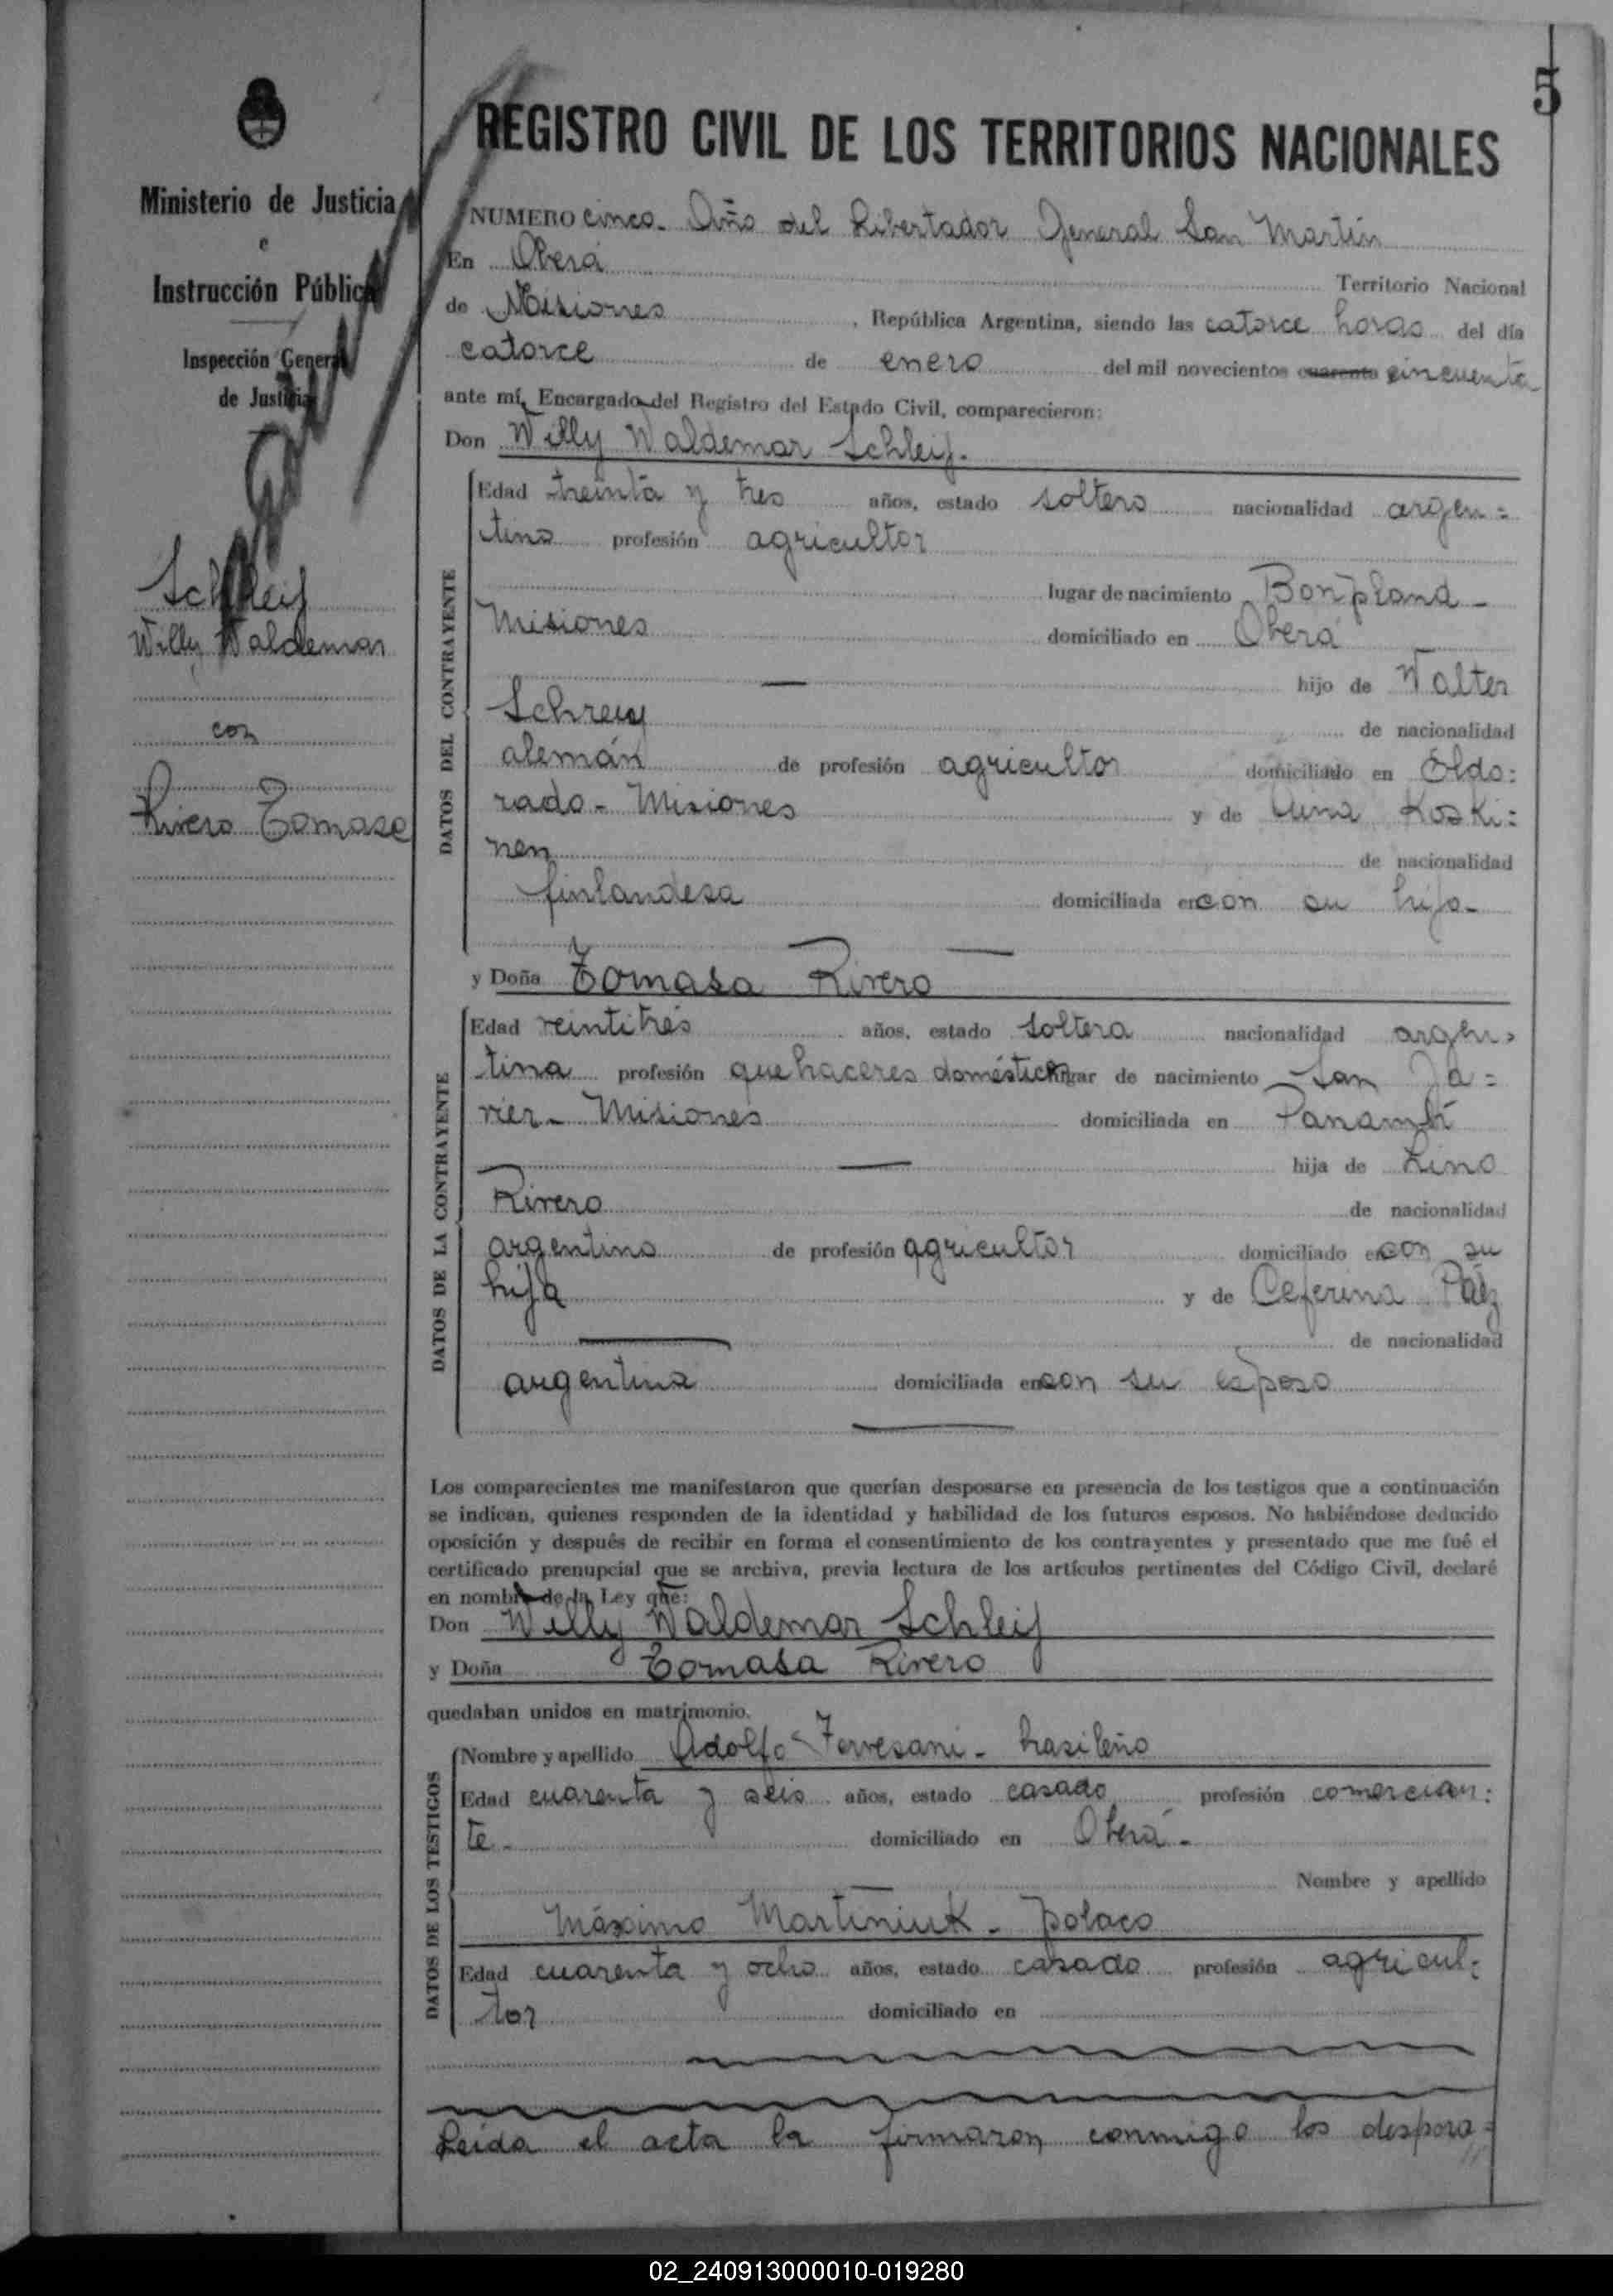 5
Ministerio de Justicia
e
Instrucción Pública
Inspección General
de Justicia
Schleif
Willy Waldemar
con
Rivero Tomasa
REGISTRO CIVIL DE LOS TERRITORIOS NACIONALES
NUMERO cinco- Año del Libertador General San Martín
En Oberá Territorio Nacional
de Misiones, República Argentina, siendo las catorce horas del día
catorce de enero del mil novecientos cuarenta cincuenta
ante mí, Encargado del Registro del Estado Civil, comparecieron:
Don Willy Waldemar Schleif.
DATOS DEL CONTRAYENTE
Edad treinta y tres años, estado soltero nacionalidad argen=
tino profesión agricultor
lugar de nacimiento Bonpland-
Misiones domiciliado en Oberá
— hijo de Walter
de nacionalidad
alemán de profesión agricultor domiciliado en Eldo=
rado- Misiones y de Koski=
nen de nacionalidad
finlandesa domiciliada en con su hijo-
y Doña Tomasa Rivero
DATOS DE LA CONTRAYENTE
Edad veintitrés años, estado soltera nacionalidad argen=
tina profesión quehaceres domésticos lugar de nacimiento San Ja=
vier- Misiones domiciliada en Panambí
— hija de Lino
Rivero de nacionalidad
argentino de profesión agricultor domiciliado en con su
hija y de Ceferina Páez
— de nacionalidad
argentina domiciliada en con su esposo
Los comparecientes me manifestaron que querían desposarse en presencia de los testigos que a continuación
se indican, quienes responden de la identidad y habilidad de los futuros esposos. No habiéndose deducido
oposición y después de recibir en forma el consentimiento de los contrayentes y presentado que me fué el
certificado prenupcial que se archiva, previa lectura de los artículos pertinentes del Código Civil, declaré
en nombre de la Ley que:
Don Willy Waldemar Schleif
y Doña Tomasa Rivero
quedaban unidos en matrimonio.
DATOS DE LOS TESTIGOS
Nombre y apellido Adolfo - brasileño
Edad cuarenta y seis años, estado casado profesión comercian=
te- domiciliado en Oberá-
Nombre y apellido
Máximo Martiniuk- polaco
Edad cuarenta y ocho años, estado casado profesión agricul=
tor domiciliado en
Leída el acta la firmaron conmigo los desposa=
02_240913000010-019280